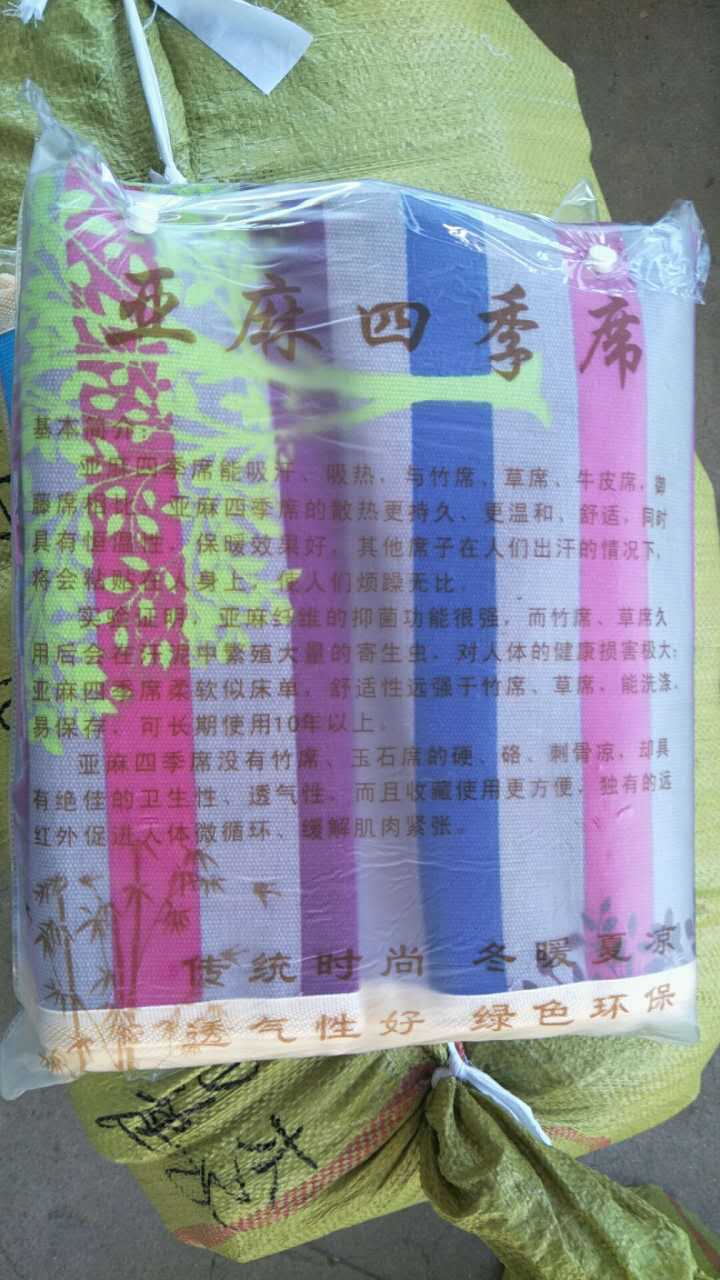 亚麻四季席
基本简介
亚麻四季席能吸汗、吸热,与竹席、草席、牛皮席,御
藤席相比,亚麻四季席的散热更持久、更温和、舒适,同时
具有恒温性,保暖效果好,其他席子在人们出汗的情况下,
将会粘贴在人身上,使人们烦躁无比。
实验证明,亚麻纤维的抑菌功能很强,而竹席、草席久
用后会在汗泥中繁殖大量的寄生虫,对人体的健康损害极大;
亚麻四季席柔软似床单,舒适性远强于竹席、草席,能洗涤、
易保存,可长期使用10年以上。
亚麻四季席没有竹席、玉石席的硬、硌、刺骨凉,却具
有绝佳的卫生性、透气性,而且收藏使用更方便,独有的远
红外促进人体微循环、缓解肌肉紧张。
传统时尚 冬暖夏凉
透气性好 绿色环保